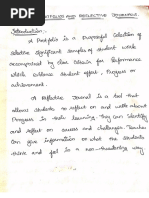 PORTFOLIO AND REFLECTIVE JOURNALS
Introduction :
A Portfolio is a Purposeful Collection of
selective significant samples of student work
accompanied by clear Criteria for Performance
which evidence student effort, Progress or
achievement.
A Reflective Journal is a tool that
allows students to reflect on and write about
Progress in their learning. They can identify
and reflect on success and challenges. Teacher
Can give information on what the students
think and feel in a non-threatening way